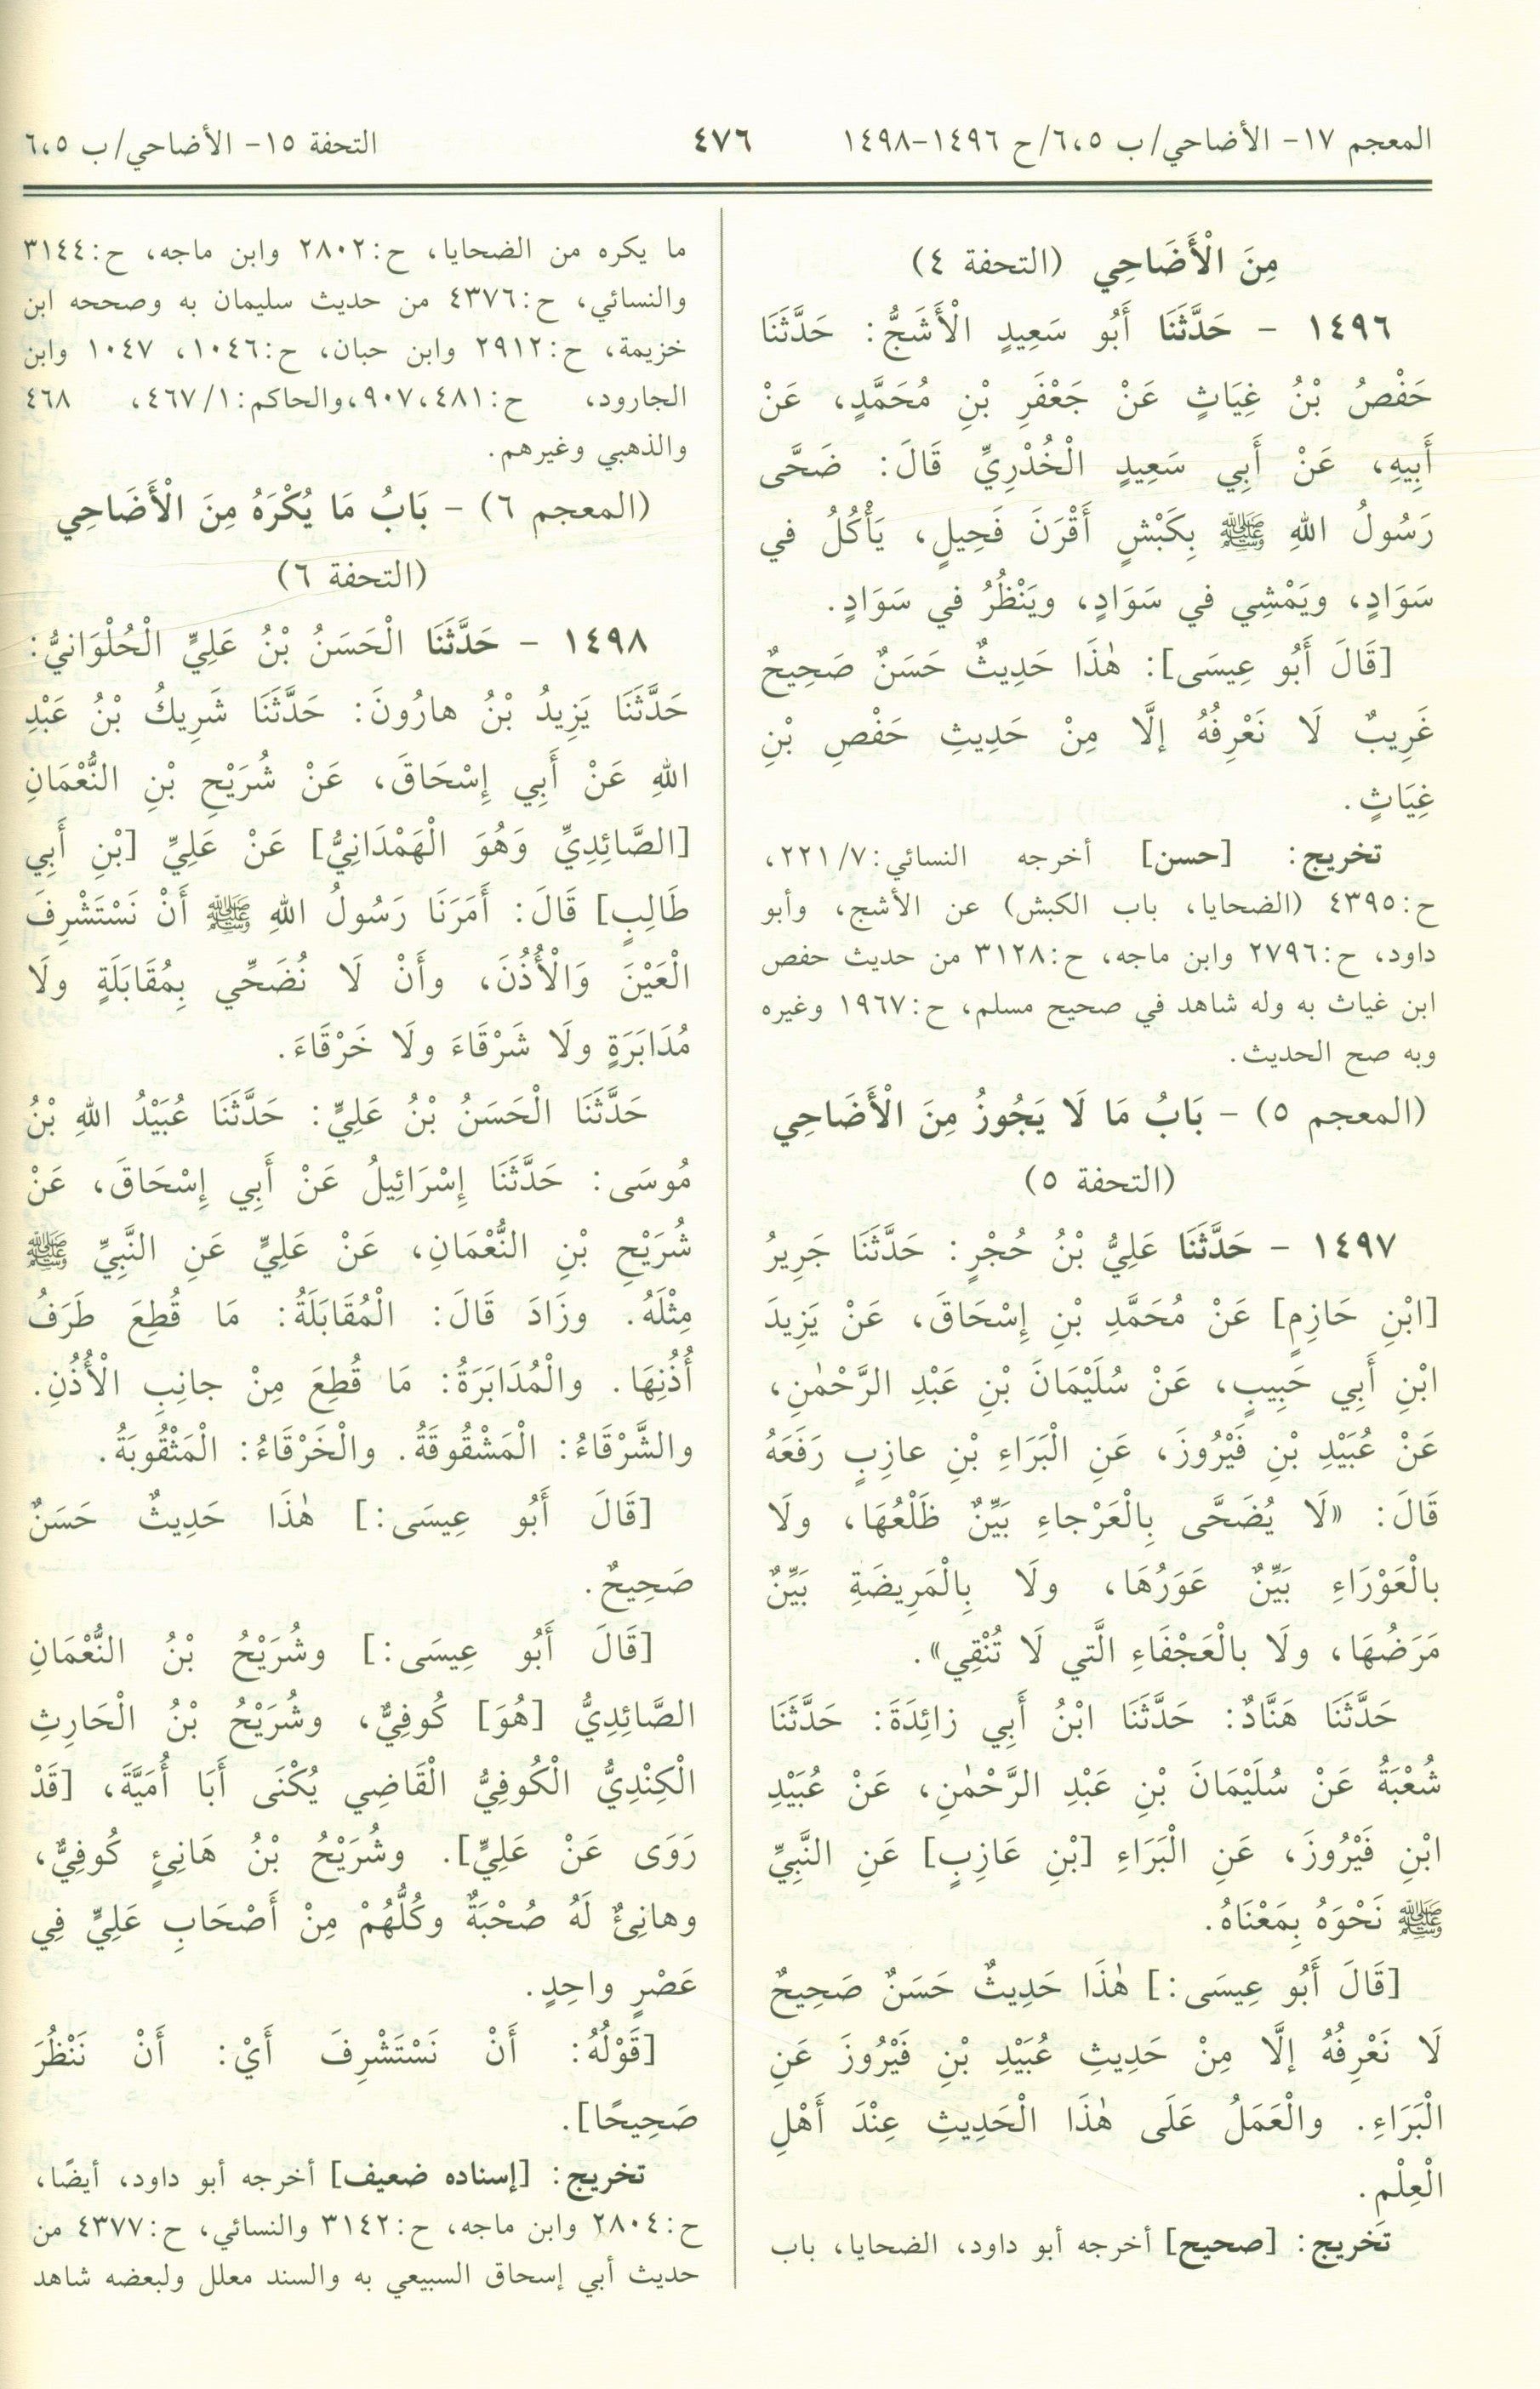 المعجم ١٧- الأضاحي/ ب ٦،٥/ح ١٤٩٦-١٤٩٨
٤٧٦
التحفة ١٥- الأضاحي/ ب ٦،٥
مِنَ الْأَضَاحِي (التحفة ٤)
١٤٩٦ - حَدَّثَنَا أَبُو سَعِيدٍ الْأَشَجُّ: حَدَّثَنَا
حَفْصُ بْنُ غِيَاثٍ عَنْ جَعْفَرِ بْنِ مُحَمَّدٍ، عَنْ
أَبِيهِ، عَنْ أَبِي سَعِيدٍ الْخُدْرِيِّ قَالَ: ضَحَّى
رَسُولُ اللهِ ﷺ بِكَبْشٍ أَقْرَنَ فَحِيلٍ، يَأْكُلُ في
سَوَادٍ، ويَمْشِي في سَوَادٍ، ويَنْظُرُ في سَوَادٍ.
[قَالَ أَبُو عِيسَى]: هٰذَا حَدِيثٌ حَسَنٌ صَحِيحٌ
غَرِيبٌ لَا نَعْرِفُهُ إلَّا مِنْ حَدِيثِ حَفْصِ بْنِ
غِيَاثٍ.
تخريج: [حسن] أخرجه النسائي: ٢٢١/٧،
ح: ٤٣٩٥ (الضحايا، باب الكبش) عن الأشج، وأبو
داود، ح: ٢٧٩٦ وابن ماجه، ح: ٣١٢٨ من حديث حفص
ابن غياث به وله شاهد في صحيح مسلم، ح: ١٩٦٧ وغيره
وبه صح الحديث.
(المعجم ٥) - بَابُ مَا لَا يَجُوزُ مِنَ الْأَضَاحِي
(التحفة ٥)
١٤٩٧ - حَدَّثَنَا عَلِيُّ بْنُ حُجْرٍ: حَدَّثَنَا جَرِيرُ
[ابْنِ حَازِمٍ] عَنْ مُحَمَّدِ بْنِ إِسْحَاقَ، عَنْ يَزِيدَ
ابْنِ أَبِي حَبِيبٍ، عَنْ سُلَيْمَانَ بْنِ عَبْدِ الرَّحْمٰنِ،
عَنْ عُبَيْدِ بْنِ فَيْرُوزَ، عَنِ الْبَرَاءِ بْنِ عازِبٍ رَفَعَهُ
قَالَ: «لَا يُضَحَّى بِالْعَرْجاءِ بَيِّنٌ ظَلْعُهَا، ولَا
بالْعَوْرَاءِ بَيِّنٌ عَوَرُهَا، ولَا بِالْمَرِيضَةِ بَيِّنٌ
مَرَضُهَا، ولَا بالْعَجْفَاءِ الَّتي لَا تُنْقِي».
حَدَّثَنَا هَنَّادٌ: حَدَّثَنَا ابْنُ أَبِي زائِدَةَ: حَدَّثَنَا
شُعْبَةُ عَنْ سُلَيْمَانَ بْنِ عَبْدِ الرَّحْمٰنِ، عَنْ عُبَيْدِ
ابْنِ فَيْرُوزَ، عَنِ الْبَرَاءِ [بْنِ عَازِبٍ] عَنِ النَّبِيِّ
ﷺ نَحْوَهُ بِمَعْنَاهُ.
[قَالَ أَبُو عِيسَى:] هٰذَا حَدِيثٌ حَسَنٌ صَحِيحٌ
لَا نَعْرِفُهُ إلَّا مِنْ حَدِيثِ عُبَيْدِ بْنِ فَيْرُوزَ عَنِ
الْبَرَاءِ. والْعَمَلُ عَلَى هٰذَا الْحَدِيثِ عِنْدَ أَهْلِ
الْعِلْمِ.
تخريج: [صحيح] أخرجه أبو داود، الضحايا، باب
ما يكره من الضحايا، ح: ٢٨٠٢ وابن ماجه، ح: ٣١٤٤
والنسائي، ح: ٤٣٧٦ من حديث سليمان به وصححه ابن
خزيمة، ح: ٢٩١٢ وابن حبان، ح: ١٠٤٦، ١٠٤٧ وابن
الجارود، ح: ٩٠٧،٤٨١، والحاكم: ٤٦٧/١، ٤٦٨
والذهبي وغيرهم.
(المعجم ٦) - بَابُ مَا يُكْرَهُ مِنَ الْأَضَاحِي
(التحفة ٦)
١٤٩٨ - حَدَّثَنَا الْحَسَنُ بْنُ عَلِيٍّ الْحُلْوَانيُّ:
حَدَّثَنَا يَزِيدُ بْنُ هارُونَ: حَدَّثَنَا شَرِيكُ بْنُ عَبْدِ
اللهِ عَنْ أَبِي إِسْحَاقَ، عَنْ شُرَيْحِ بْنِ النُّعْمَانِ
[الصَّائِدِيِّ وَهُوَ الْهَمْدَانِيُّ] عَنْ عَلِيِّ [بْنِ أَبِي
طَالِبٍ] قَالَ: أَمَرَنَا رَسُولُ اللهِ ﷺ أَنْ نَسْتَشْرِفَ
الْعَيْنَ وَالْأُذُنَ، وأَنْ لَا نُضَحِّي بِمُقَابَلَةٍ ولَا
مُدَابَرَةٍ ولَا شَرْقَاءَ ولَا خَرْقَاءَ.
حَدَّثَنَا الْحَسَنُ بْنُ عَلِيٍّ: حَدَّثَنَا عُبَيْدُ اللهِ بْنُ
مُوسَى: حَدَّثَنَا إِسْرَائِيلُ عَنْ أَبِي إِسْحَاقَ، عَنْ
شُرَيْحِ بْنِ النُّعْمَانِ، عَنْ عَلِيٍّ عَنِ النَّبِيِّ ﷺ
مِثْلَهُ. وزَادَ قَالَ: الْمُقَابَلَةُ: مَا قُطِعَ طَرَفُ
أُذُنِهَا. والْمُدَابَرَةُ: مَا قُطِعَ مِنْ جانِبِ الْأُذُنِ.
والشَّرْقَاءُ: الْمَشْقُوقَةُ. والْخَرْقَاءُ: الْمَثْقُوبَةُ.
[قَالَ أَبُو عِيسَى:] هٰذَا حَدِيثٌ حَسَنٌ
صَحِيحٌ.
[قَالَ أَبُو عِيسَى:] وشُرَيْحُ بْنُ النُّعْمَانِ
الصَّائِدِيُّ [هُوَ] كُوفِيٌّ، وشُرَيْحُ بْنُ الْحَارِثِ
الْكِنْدِيُّ الْكُوفِيُّ الْقَاضِي يُكْنَى أَبَا أُمَيَّةَ، [قَدْ
رَوَى عَنْ عَلِيٍّ]. وشُرَيْحُ بْنُ هَانِئٍ كُوفِيٌّ،
وهانِئٌ لَهُ صُحْبَةٌ وكُلُّهُمْ مِنْ أَصْحَابِ عَلِيٍّ فِي
عَصْرٍ واحِدٍ.
[قَوْلُهُ: أَنْ نَسْتَشْرِفَ أَيْ: أَنْ نَنْظُرَ
صَحِيحًا].
تخريج: [إسناده ضعيف] أخرجه أبو داود، أيضًا،
ح: ٢٨٠٤ وابن ماجه، ح: ٣١٤٢ والنسائي، ح: ٤٣٧٧ من
حديث أبي إسحاق السبيعي به والسند معلل ولبعضه شاهد